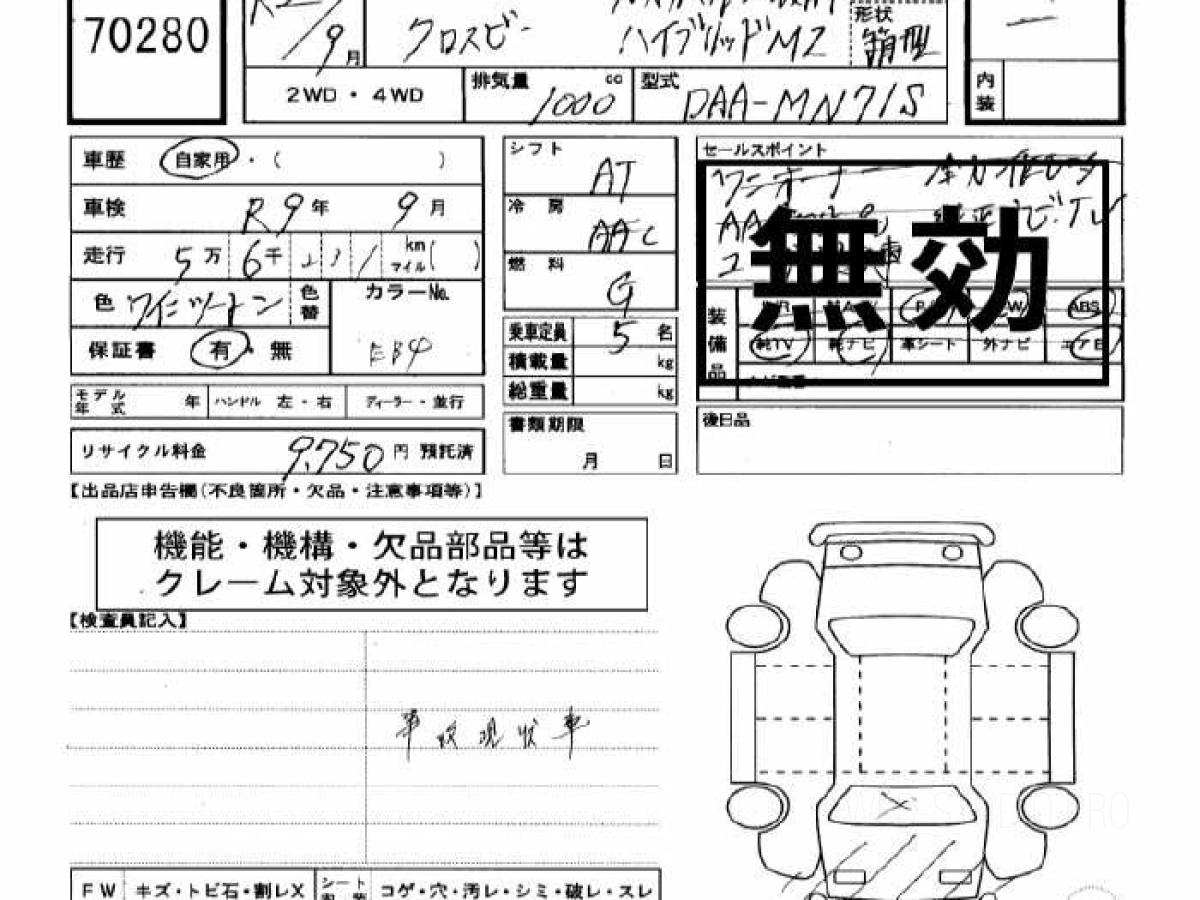 70280
9月
クロスビー
ハイブリッドMZ
形状
箱型
2WD・4WD
排気量 1000 cc
型式 DAA-MN71S
内装
車歴 自家用・( )
車検 R9年 9月
走行 5万 6千 km マイル( )
色 ツートン 色替
カラーNo.
保証書 有・無
モデル年式 年 ハンドル 左・右 ディーラー・並行
リサイクル料金 9,750 円 預託済
シフト AT
冷房 AAC
燃料 G
乗車定員 5 名
積載量 kg
総重量 kg
書類期限
月 日
セールスポイント
ワンオーナー
無効
装備品
ABS
TV ナビ 革シート 外ナビ エアB
後日品
【出品店申告欄(不良箇所・欠品・注意事項等)】
機能・機構・欠品部品等は
クレーム対象外となります
【検査員記入】
事故現状車
FW キズ・トビ石・割レX シート コゲ・穴・汚レ・シミ・破レ・スレ